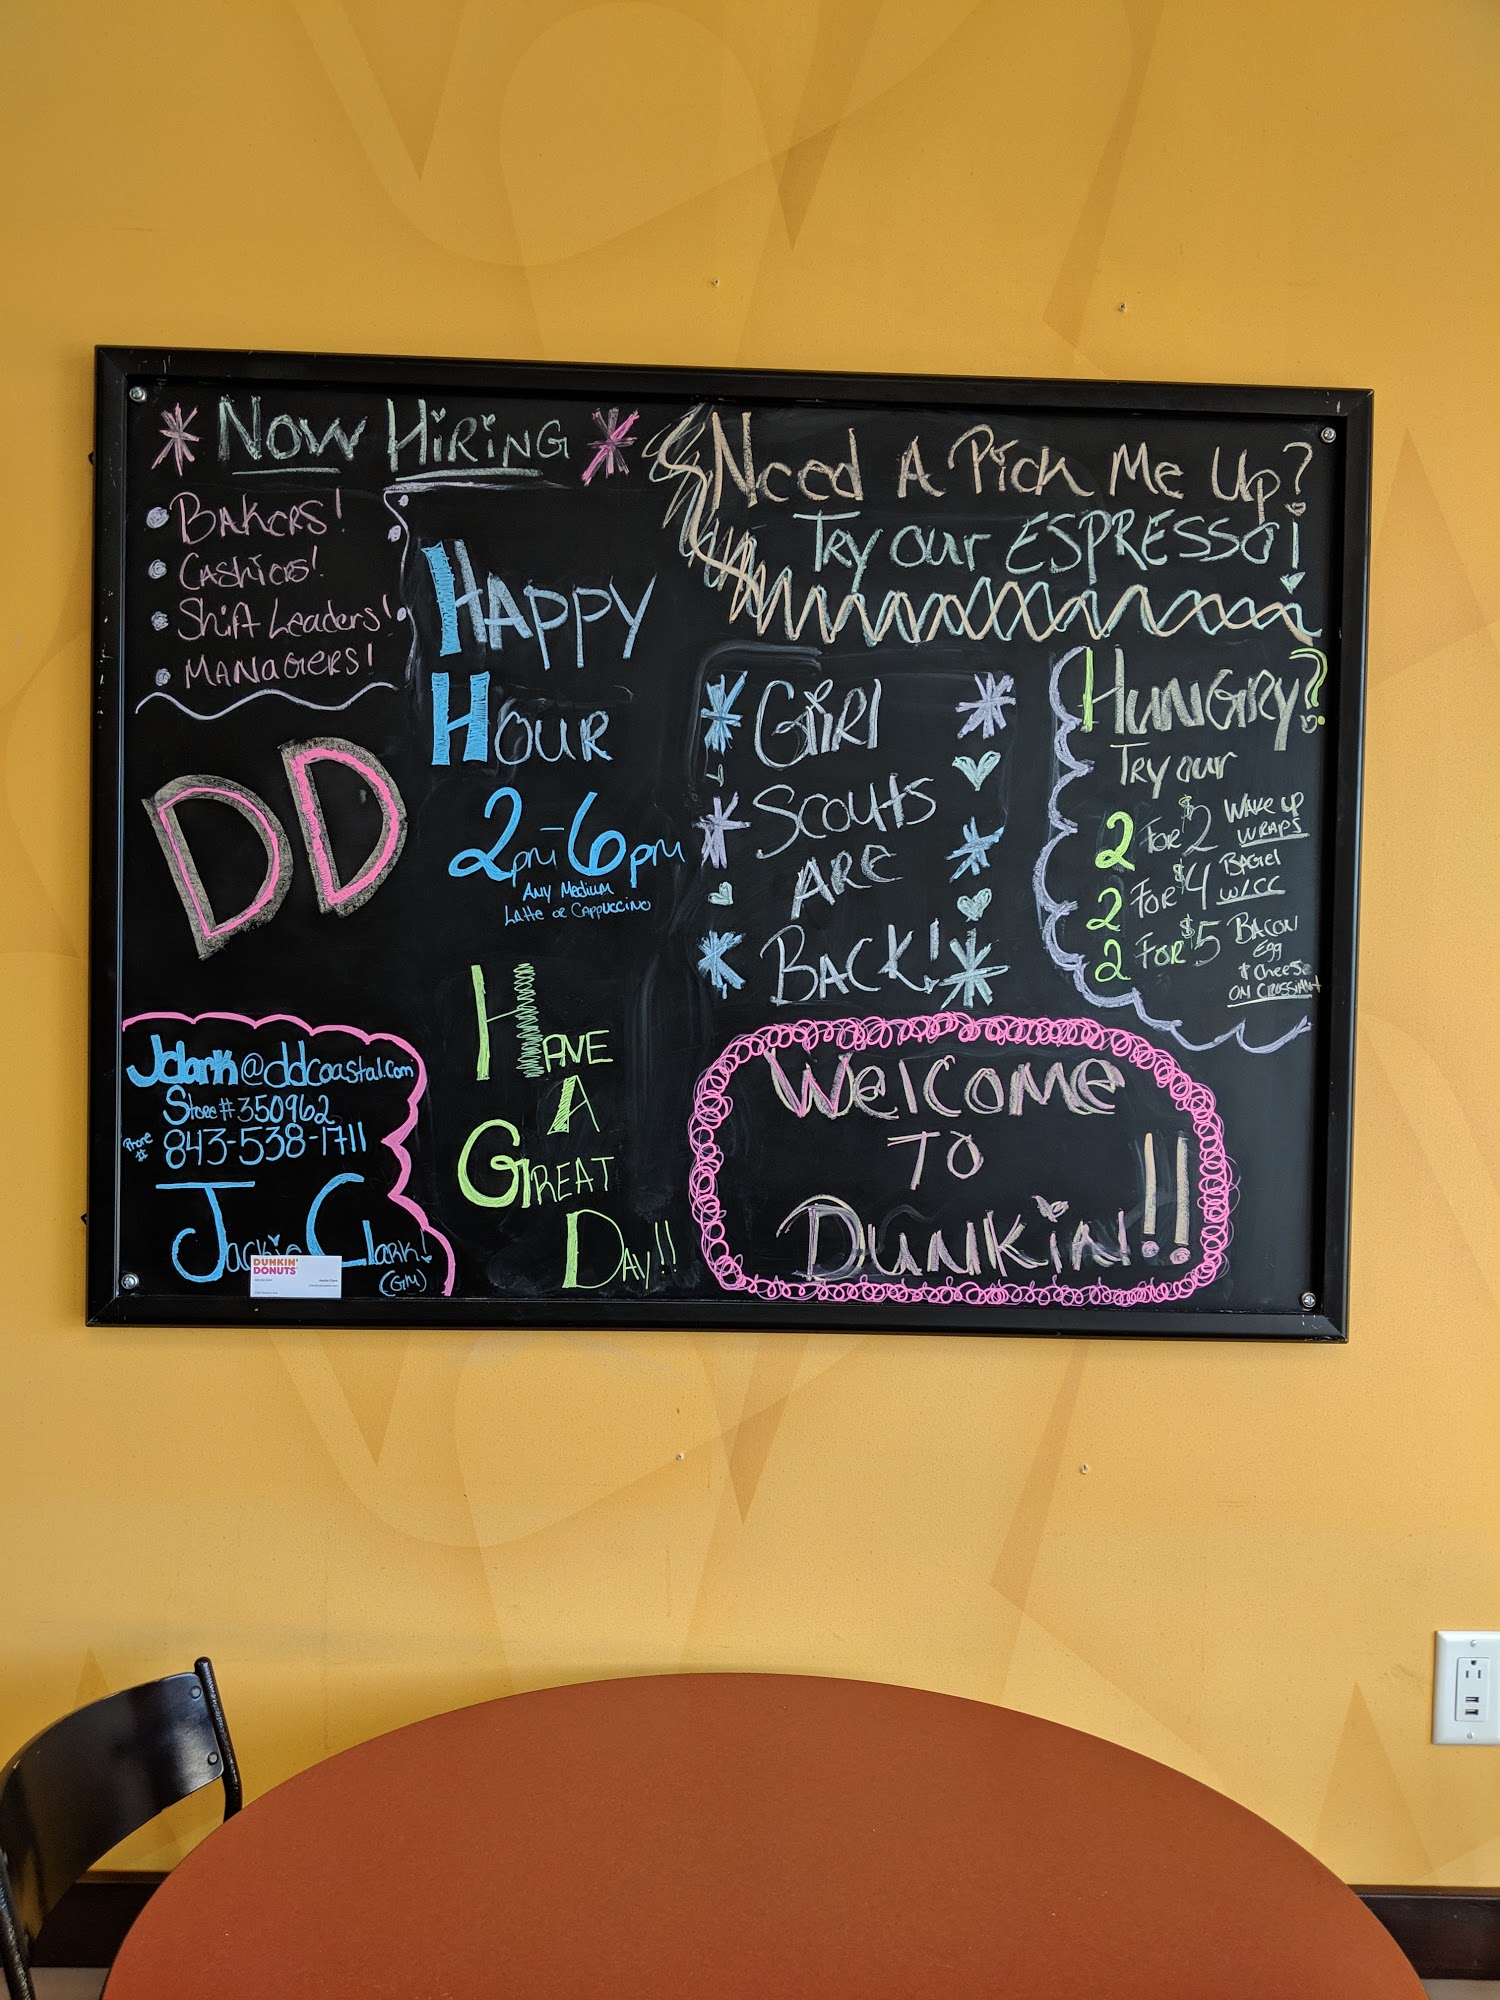 NOW HIRING
BAKERS!
CASHIERS!
Shift Leaders!
MANAGERS!
DD
Jclark@ddcoastal.com
Store# 350962
Phone # 843-538-1711
Jackie Clark!
(GM)
DUNKIN'
DONUTS
HAPPY
HOUR
2pm-6pm
ANY MEDIUM
LATTE OR CAPPUCCINO
HAVE
A
GREAT
DAY!!
Need A Pick Me Up?
Try our ESPRESSO!
GIRL
SCOUTS
ARE
BACK!
HUNGRY?
Try our
2 FOR $2 WAKE UP
WRAPS
2 FOR $4 BAGEL
W/CC
2 FOR $5 BACON
Egg
& Cheese
ON CROSSIANT
WELCOME
TO
DUNKIN!!